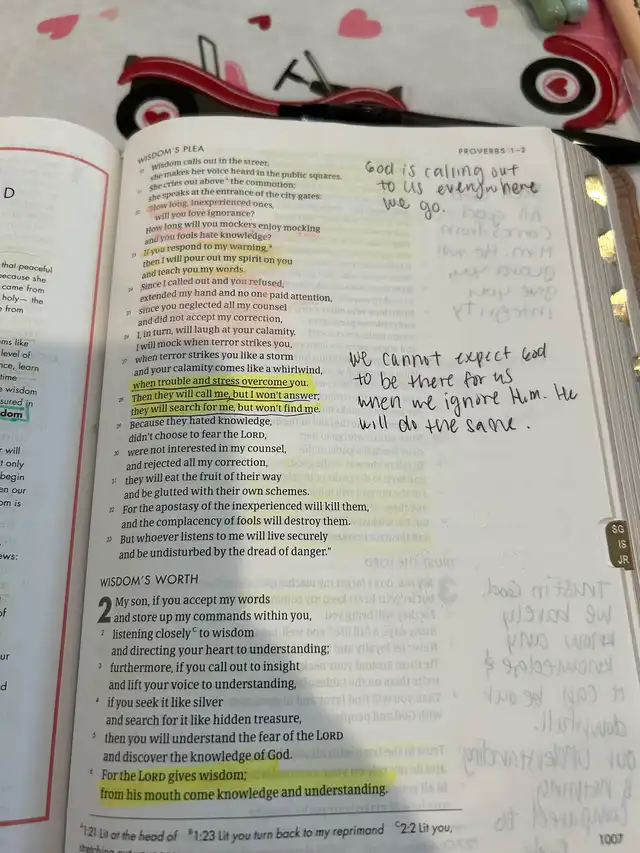 WISDOM'S PLEA
PROVERBS 1–2
20 Wisdom calls out in the street;
she makes her voice heard in the public squares.
21 She cries out above A the commotion;
she speaks at the entrance of the city gates:
22 "How long, inexperienced ones,
will you love ignorance?
How long will you mockers enjoy mocking
and you fools hate knowledge?
23 If you respond to my warning, B
then I will pour out my spirit on you
and teach you my words.
24 Since I called out and you refused,
extended my hand and no one paid attention,
25 since you neglected all my counsel
and did not accept my correction,
26 I, in turn, will laugh at your calamity.
I will mock when terror strikes you,
27 when terror strikes you like a storm
and your calamity comes like a whirlwind,
when trouble and stress overcome you.
28 Then they will call me, but I won't answer;
they will search for me, but won't find me.
29 Because they hated knowledge,
didn't choose to fear the LORD,
30 were not interested in my counsel,
and rejected all my correction,
31 they will eat the fruit of their way
and be glutted with their own schemes.
32 For the apostasy of the inexperienced will kill them,
and the complacency of fools will destroy them.
33 But whoever listens to me will live securely
and be undisturbed by the dread of danger."
WISDOM'S WORTH
2 My son, if you accept my words
and store up my commands within you,
2 listening closely C to wisdom
and directing your heart to understanding;
3 furthermore, if you call out to insight
and lift your voice to understanding,
4 if you seek it like silver
and search for it like hidden treasure,
5 then you will understand the fear of the LORD
and discover the knowledge of God.
6 For the LORD gives wisdom;
from his mouth come knowledge and understanding.
A 1:21 Lit at the head of B 1:23 Lit you turn back to my reprimand C 2:2 Lit you,
stretching out
1007
God is calling out
to us everywhere
we go.
we cannot expect God
to be there for us
when we ignore Him. He
will do the same.
SG
IS
JR
D
that peaceful
because she
came from
holy— the
e from
ms like
level of
nce, learn
time
e wisdom
sured in
dom
r will
t only
begin
en our
om is
ews:
of
ur
d